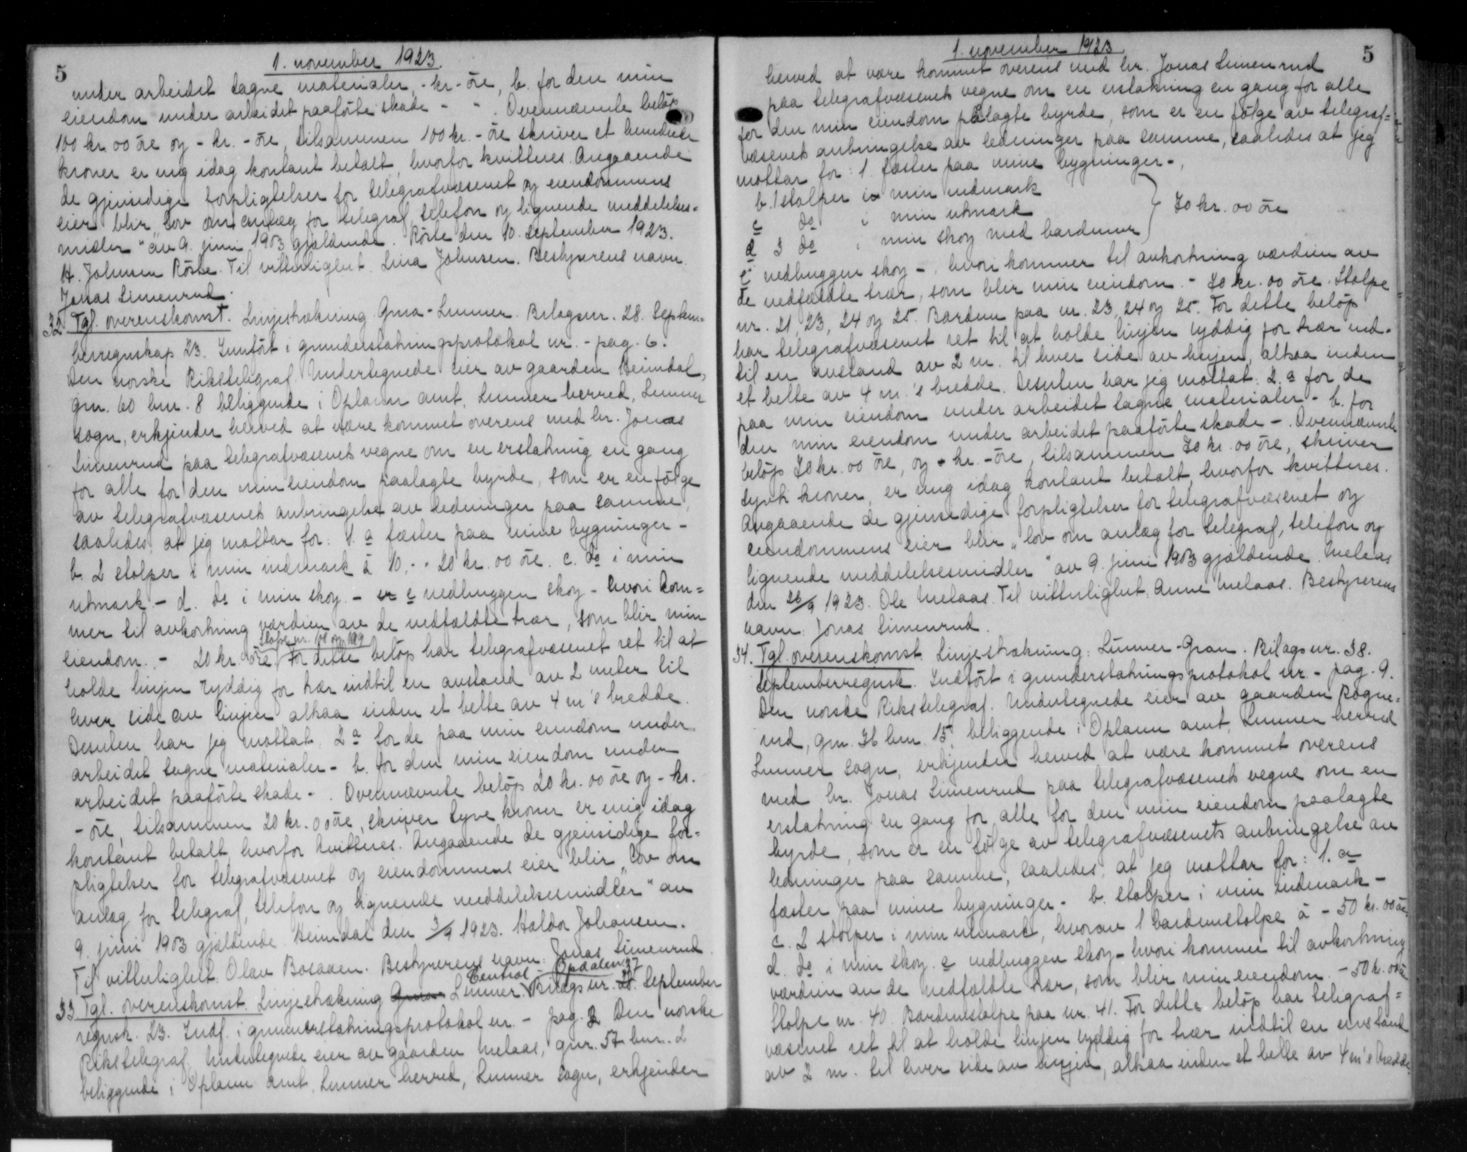 5
1. november 1923.
under arbeidet tagne materialer, - kr - öre, b. for den min
eiendom under arbeidet paaförte skade - " - Ovennævnte belöp
100 kr 00 öre og - kr. - öre, tilsammen 100 kr. - öre skriver et hundrede
kroner er mig idag kontant betalt, hvorfor kvitteres. Angaaende
de gjensidige forpligtelser for telegrafvæsenet og eiendommens
eier blir "lov om anlæg for telegraf, telefon og lignende meddelelses=
midler" av 9. juni 1903 gjældende. Röste den 10. September 1923.
H. Johnsen Röste. Til vitterlighet. Lina Johnsen. Bestyrerens navn
Jonas Simenrud.
32. Tgl. overenskomst. Linjestrækning Grua - Lunner. Bilagsnr. 28. Septem=
berregnskap 23. Indfört i grunderstatningsprotokol nr. - pag. 6.
Den norske Rikstelegraf. Undertegnede eier av gaarden Heimdal,
gnr. 60 bnr. 8 beliggende i Oplann amt, Lunner herred, Lunner
sogn, erkjender herved at være kommet overens med hr. Jonas
Simenrud paa telegrafvæsenets vegne om en erstatning en gang
for alle for den min eiendom paalagte byrde, som er en fölge
av telegrafvæsenets anbringelse av ledninger paa samme,
saaledes at jeg mottar for: 1. a fæster paa mine bygninger -
b. 2 stolper i min indmark à 10,- - 20 kr. 00 öre. c. do i min
utmark - d. do i min skog - e nedhuggen skog - hvori kom=
mer til avkortning værdien av de nedfældte trær, som blir min
eiendom. - 20 kr. öre. Stolpe nr. 18 og 19 For dette belöp har telegrafvæsenet ret til at
holde linjen ryddig for trær indtil en avstand av 2 meter til
hver side av linjen altsaa inden et belte av 4 m's bredde.
Desuten har jeg mottat 2 a for de paa min eiendom under
arbeidet tagne materialer - b. for den min eiendom under
arbeidet paaförte skade - . Ovennævnte belöp 20 kr. 00 öre og - kr.
- öre, tilsammen 20 kr. 00 öre, skriver tyve kroner er mig idag
kontant betalt hvorfor kvitteres. Angaaende de gjensidige for=
pligtelser for telegrafvæsenet og eiendommens eier blir "Lov om
anlæg for telegraf, telefon og lignende meddelelsesmidler" av
9. juni 1903 gjældende. Heimdal den 3/9 1923. Haldor Johansen.
Til vitterlighet Olav Bosaaen. Bestyrerens navn: Jonas Simenrud.
33 Tgl. overenskomst. Linjestrækning Lunner Central - Opdalen. Bilagsnr. 37. September
regnsk. 23. Indf. i grunderstatningsprotokol nr. - pag. 2 Den norske
Rikstelegraf. Undertegnede eier av gaarden Melaas, gnr. 57 bnr. 2
beliggende i Oplann amt, Lunner herred, Lunner sogn, erkjender
5
1. november 1923.
herved at være kommet overens med hr. Jonas Simenrud
paa telegrafvæsenets vegne om en erstatning en gang for alle
for den min eiendom pålagte byrde, som er en fölge av telegraf=
væsenets anbringelse av ledninger paa samme, saaledes at jeg
mottar for: 1 fæster paa mine bygninger -,
b. 1 stolper i min indmark
c do i min utmark
d 3 do i min skog med barduner } 70 kr. 00 öre
e nedhuggen skog - hvori kommer til avkortning værdien av
de nedfældte trær, som blir min eiendom. - 70 kr. 00 öre. Stolpe
nr. 21, 23, 24 og 25. Bardun paa nr. 23, 24 og 25. For dette belöp
har telegrafvæsenet ret til at holde linjen ryddig for trær ind-
til en avstand av 2 m. til hver side av linjen, altsaa inden
et belte av 4 m.'s bredde. Desuten har jeg mottat: 2. a for de
paa min eiendom under arbeidet tagne materialer - b. for
den min eiendom under arbeidet paaförte skade - . Ovennævnte
belöp 70 kr. 00 öre, og - kr. - öre, tilsammen 70 kr. 00 öre, skriver
sytti kroner, er mig idag kontant betalt, hvorfor kvitteres.
Angaaende de gjensidige forpligtelser for telegrafvæsenet og
eiendommens eier blir "lov om anlæg for telegraf, telefon og
lignende meddelelsesmidler" av 9. juni 1903 gjældende. Melaas
den 28/9 1923. Ole Melaas. Til vitterlighet. Anne Melaas. Bestyrerens
navn: Jonas Simenrud.
34. Tgl. overenskomst. Linjestrækning: Lunner - Gran. Bilagsnr. 38.
Septemberregnsk. Indfört i grunderstatningsprotokol nr. - pag. 9.
Den norske Rikstelegraf. Undertegnede eier av gaarden Rogne=
rud, gnr. 76 bnr. 15 beliggende i Oplann amt, Lunner herred
Lunner sogn, erkjender herved at være kommet overens
med hr. Jonas Simenrud paa telegrafvæsenets vegne om en
erstatning en gang for alle for den min eiendom paalagte
byrde, som er en fölge av telegrafvæsenets anbringelse av
ledninger paa samme, saaledes, at jeg mottar for: 1. a
fæster paa mine bygninger - b. stolper i min indmark -
c. 2 stolper i min utmark, hvorav 1 bardunstolpe à - 50 kr. 00 öre.
d. do i min skog. e nedhuggen skog - hvori kommer til avkortning
værdien av de nedfældte trær, som blir min eiendom. - 50 kr. 00 öre
Stolpe nr. 40. Bardunstolpe paa nr. 41. For dette belöp har telegraf=
væsenet ret til at holde linjen ryddig for trær indtil en avstand
av 2 m. til hver side av linjen, altsaa inden et belte av 4 m's bredde.